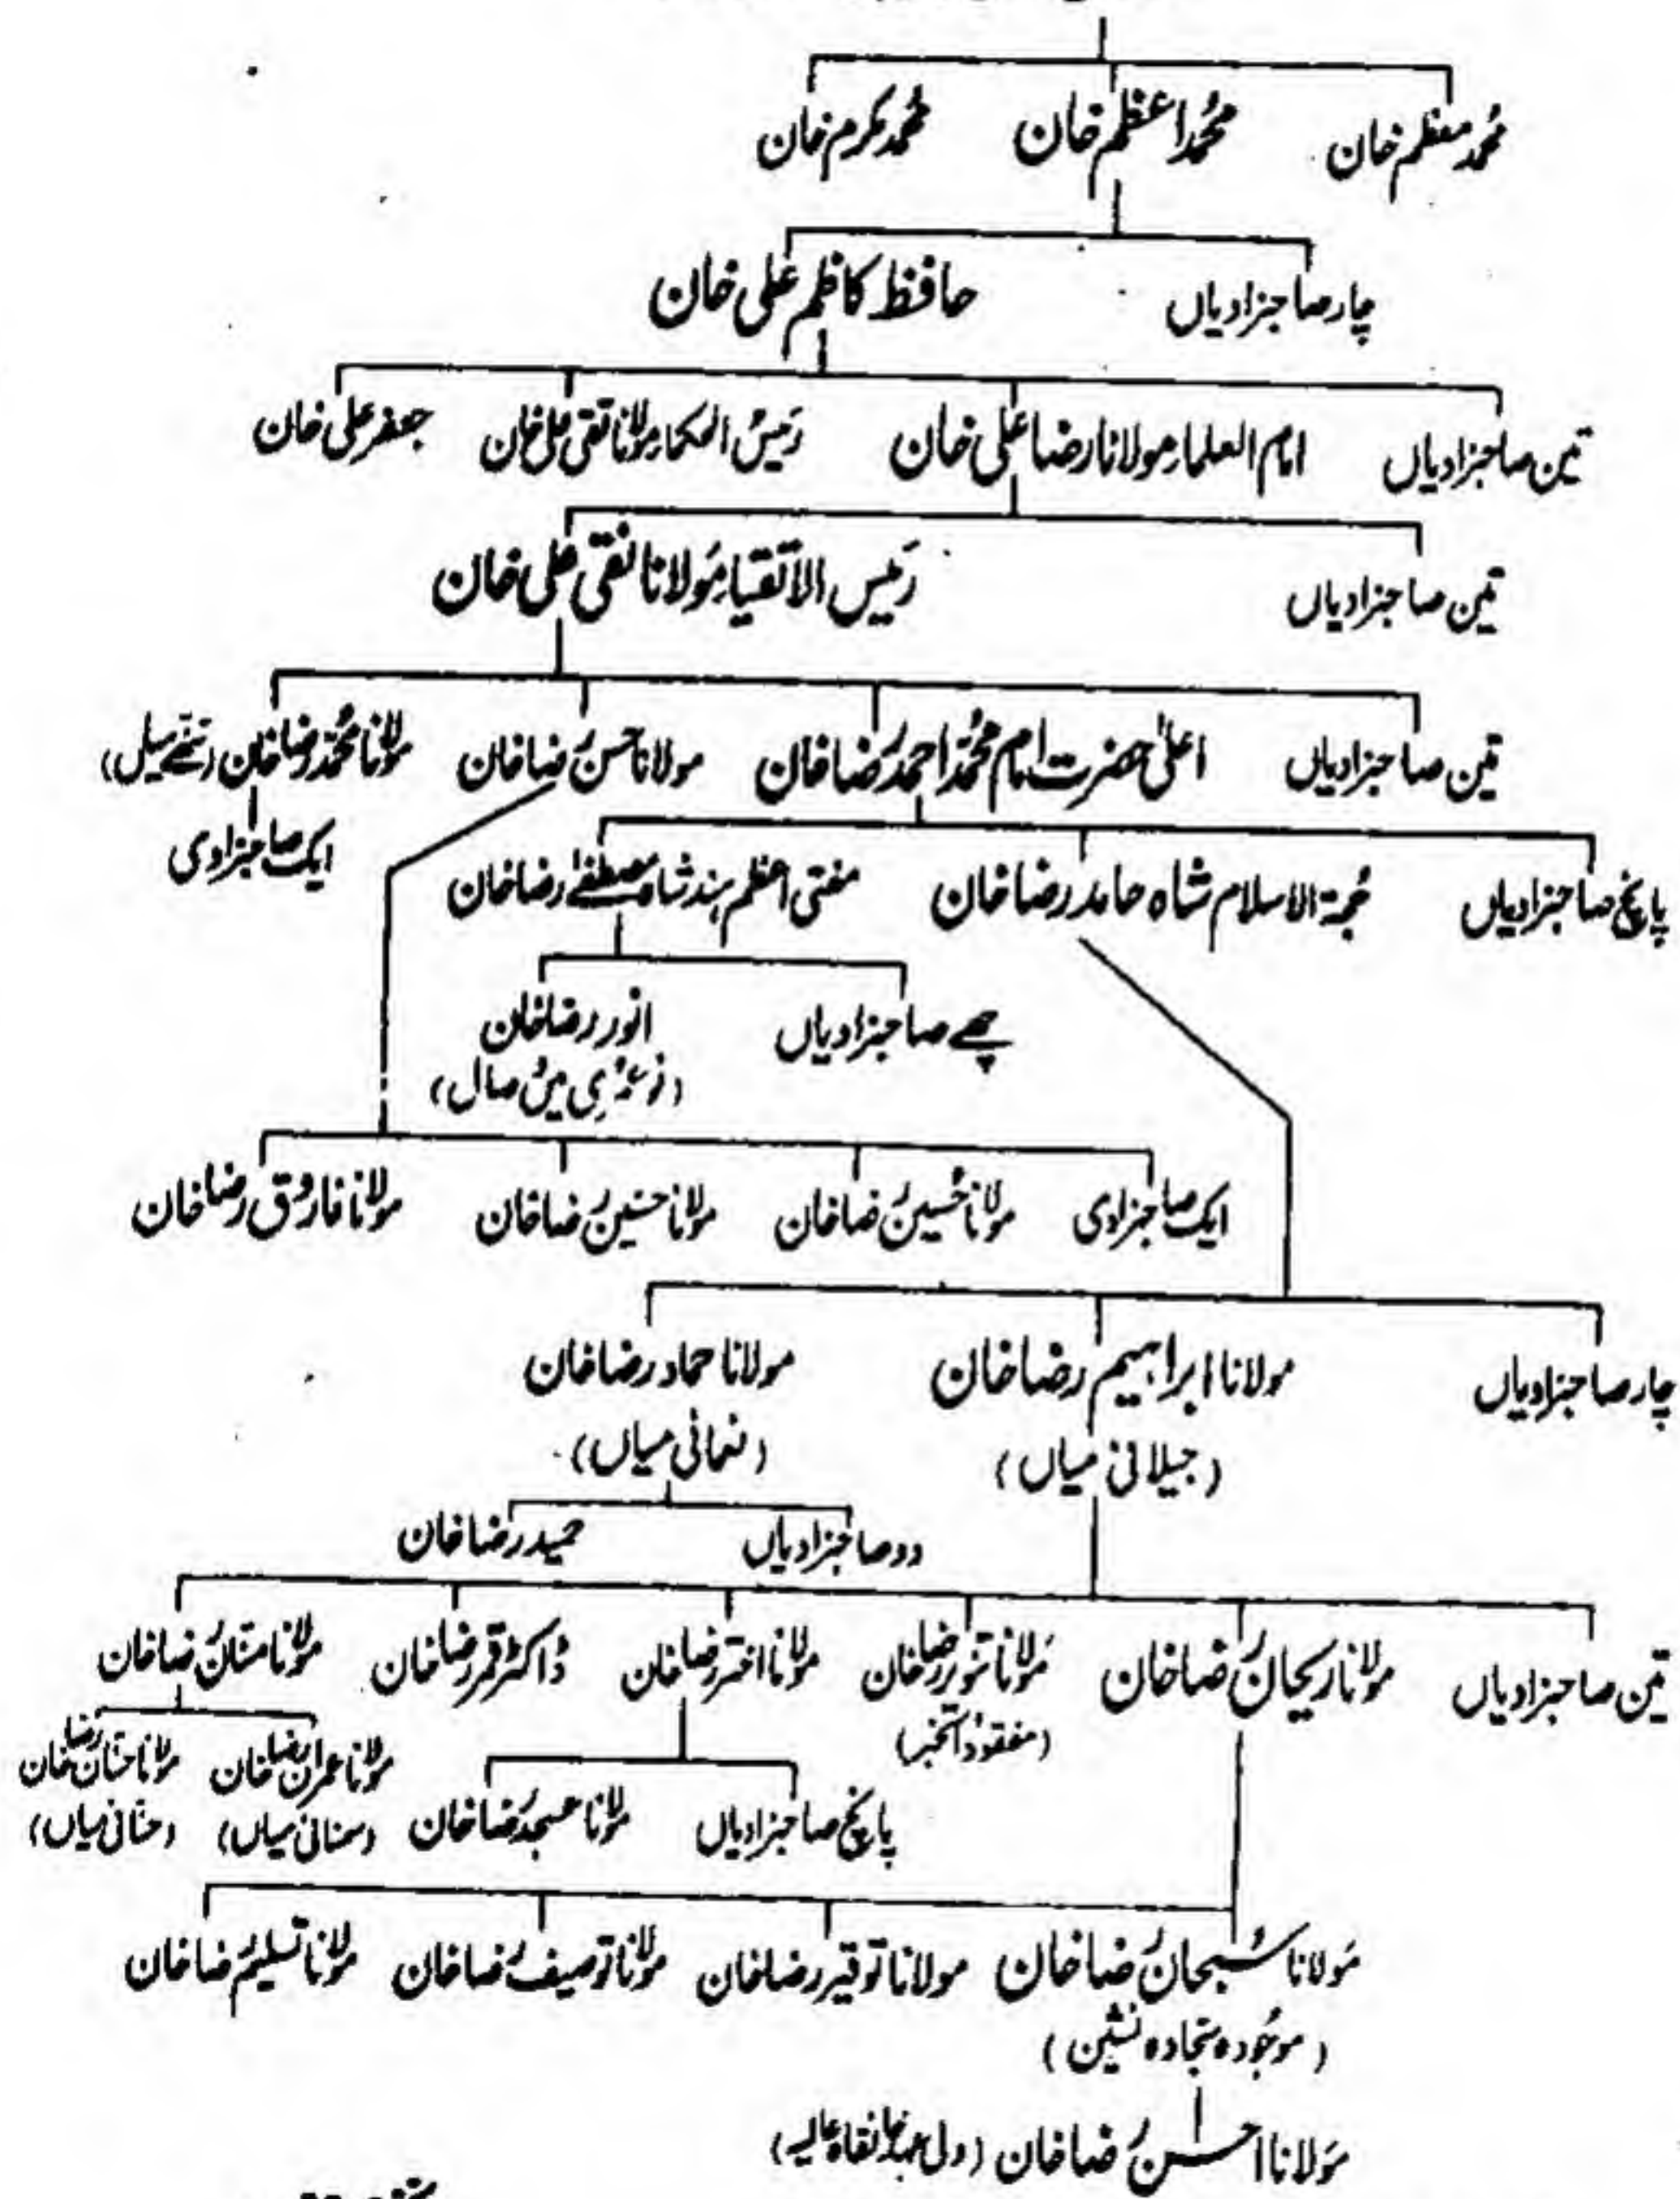 محمد معظم خان محمد اعظم خان محمد مکرم خان
چار صاحبزادیاں حافظ کاظم علی خان
تین صاحبزادیاں امام العلماء مولانا رضا علی خان رئیس الحکماء مولانا تقی علی خان جعفر علی خان
تین صاحبزادیاں رئیس الاتقیاء مولانا نقی علی خان
تین صاحبزادیاں اعلیٰ حضرت امام محمد احمد رضا خان مولانا حسن رضا خان مولانا محمد رضا خان (ننھے میاں)
ایک صاحبزادی
پانچ صاحبزادیاں حجۃ الاسلام شاہ حامد رضا خان مفتی اعظم ہند شاہ مصطفےٰ رضا خان
چھے صاحبزادیاں انور رضا خان
(نو عمری میں وصال)
ایک صاحبزادی مولانا حسین رضا خان مولانا حسنین رضا خان مولانا فاروق رضا خان
چار صاحبزادیاں مولانا ابراہیم رضا خان مولانا حماد رضا خان
(جیلانی میاں) (نعمانی میاں)
دو صاحبزادیاں حمید رضا خان
تین صاحبزادیاں مولانا ریحان رضا خان مولانا تنویر رضا خان مولانا اختر رضا خان ڈاکٹر قمر رضا خان مولانا منان رضا خان
(مفقود الخبر)
مولانا عمران رضا خان مولانا حنان رضا خان
پانچ صاحبزادیاں مولانا عسجد رضا خان (سمنانی میاں) (حنانی میاں)
مولانا سبحان رضا خان مولانا توقیر رضا خان مولانا توصیف رضا خان مولانا تسلیم رضا خان
(موجودہ سجادہ نشین)
مولانا احسن رضا خان (ولی عہد خانقاہ عالیہ)